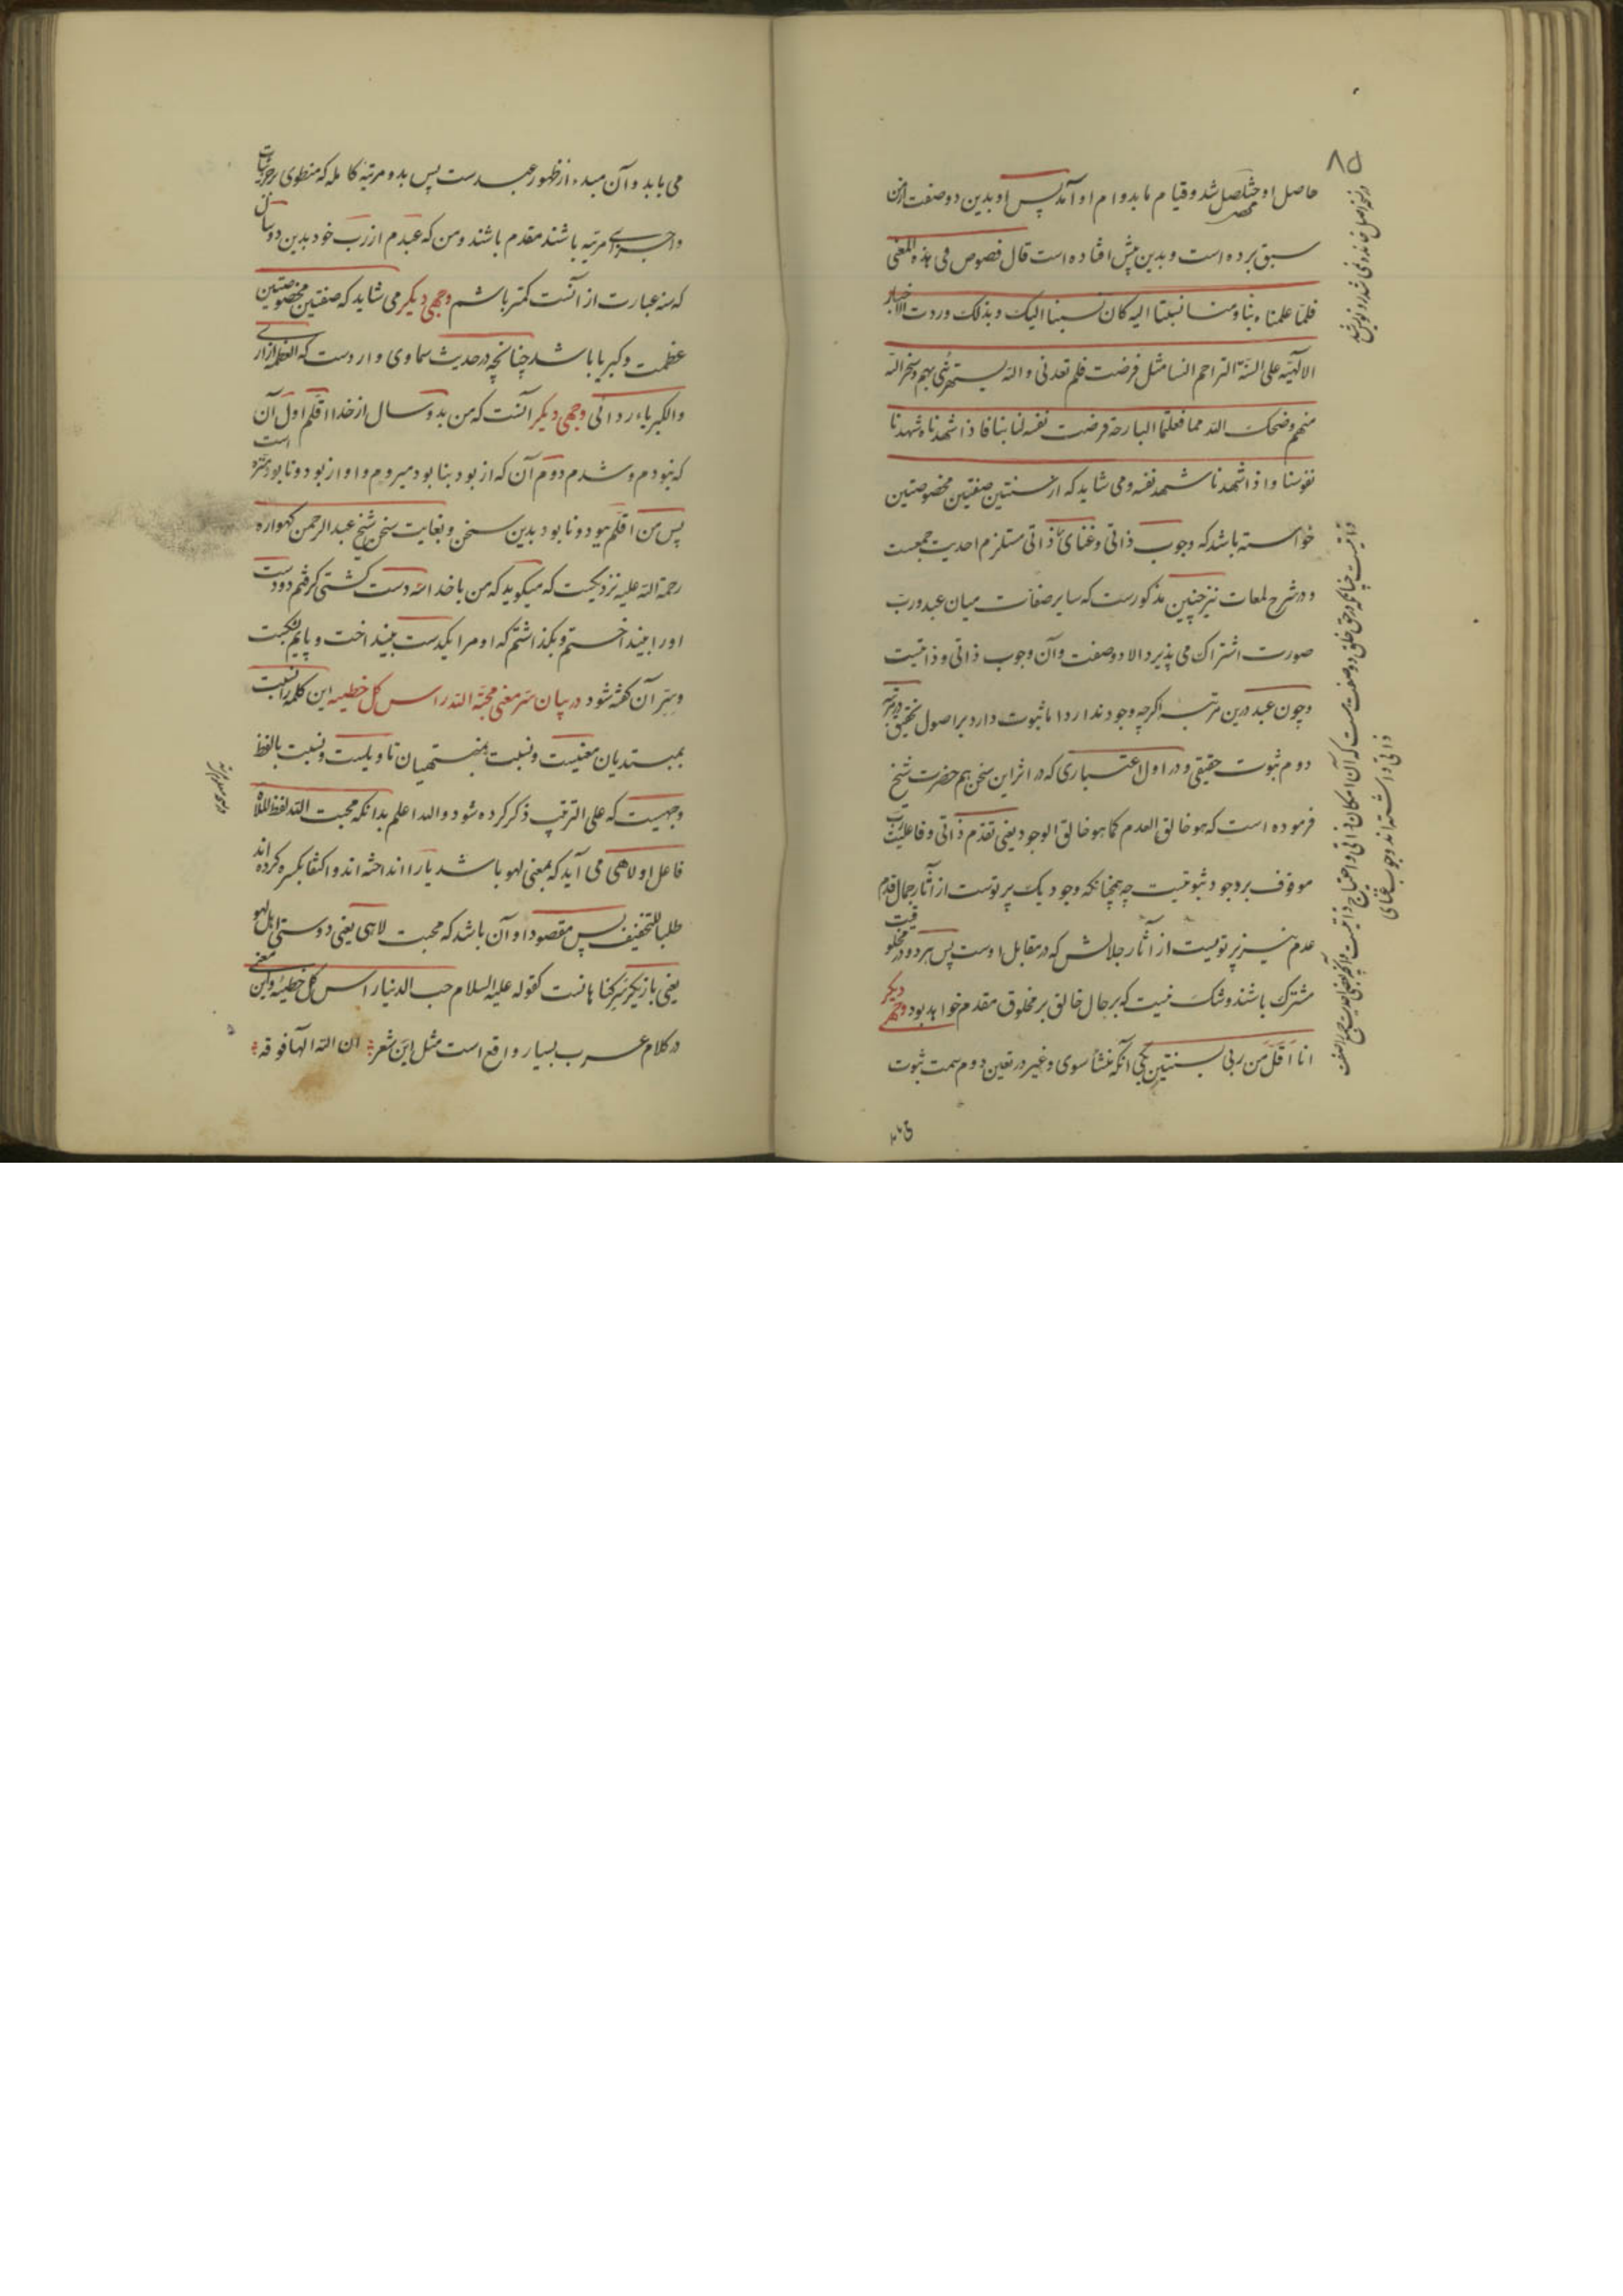 ۸۵
حاصل او متأصل شد و قیام ما بدوام او آمد پس او بدین دو صفت از من
سبق برده است و بدین پیش افتاده است قال فصوص فی هذه المعنی
فلما علمناه بنا ومنا نسبنا الیه کان نسبنا الیک وبذلک وردت الاخبار
الالهیه علی السنة التراجم النسا مثل فرضت فلم تعدنی والله یستهزئ بهم وسخر الله
منهم وضحک الله مما فعلتما البارحة فرضت نفسه لنا بنا فاذا شهدناه شهدنا
نفوسنا واذا شهدنا شهد نفسه و می شاید که از سنتین صفتین مخصوصتین
خواسته باشد که وجوب ذاتی و غنای ذاتی مستلزم احدیت جمعست
و در شرح لمعات نیز چنین مذکورست که سایر صفات میان عبد و رب
صورت اشتراک می پذیرد الا دو صفت و آن وجوب ذاتی و ذاتیست
و چون عبد درین مرتبه اگرچه وجود ندارد اما ثبوت دارد بر اصول تحقیق در مرتبه
دوم ثبوت حقیقی و در اول اعتباری که در اثر این سخن هم حضرت شیخ
فرموده است که هو خالق العدم کما هو خالق الوجود یعنی تقدم ذاتی و فاعلیت رب
موقوف بر وجود ثبوتیست چه همچنانکه وجود یک پرتوست از آثار جمال قدم
عدم نیز پرتویست از آثار جلالش که در مقابل اوست پس هر دو در مخلوقیت
مشترک باشند و شک نیست که بر حال خالق بر مخلوق مقدم خواهد بود وجهی دیگر
انا اقل من ربی بسنتین یکی آنکه منشأ سوی و غیر در تعین دوم سمت ثبوت
می یابد و آن مبدء از ظهور عبدست پس بدو مرتبهٔ کامله که منطوی بر جزئیات
واجزای مرتبه باشند مقدم باشند و من که عبدم از رب خود بدین دو سال
که سنه عبارت از آنست کمتر باشم وجهی دیگر می شاید که صفتین مخصوصتین
عظمت و کبریا باشد چنانچه در حدیث سماوی وارد ست که العظمة ازاری
والکبریاء ردائی وجهی دیگر آنست که من بدو سال از خدا اقلم اول آن
که نبودم و شدم دوم آن که از بود بنابود میروم و او از بود و نابود منزه است
پس من اقلم ببود و نابود بدین سخن و بغایت سخن شیخ عبدالرحمن گهواره
رحمة الله علیه نزدیکست که میگوید که من با خدا الله دست کشتی گرفتم دو دست
اورا بینداختم و بگذاشتم که او مرا یکدست بینداخت و پایم بشکست
و سر آن گفته شود در بیان سر معنی محبة الله راس کل خطیه این کلمه را نسبت
بمبتدیان معنیست و نسبت بمنتهیان تاویلست و نسبت بالفظ
وجهیست که علی الترتیب ذکر کرده شود والله اعلم بدانکه محبت الله لفظ للاه
فاعل او لاهی می آید که بمعنی لهو باشد یا را انداخته اند و اکتفا بکسره کرده اند
طلبا للتخفیف پس مقصود او آن باشد که محبت لاهی یعنی دوستی اهل لهو
یعنی بازیگر سر گناهانست کقوله علیه السلام حب الدنیا راس کل خطیئه و این معنی
در کلام عرب بسیار واقع است مثل این شعر ان الله الها فوقه